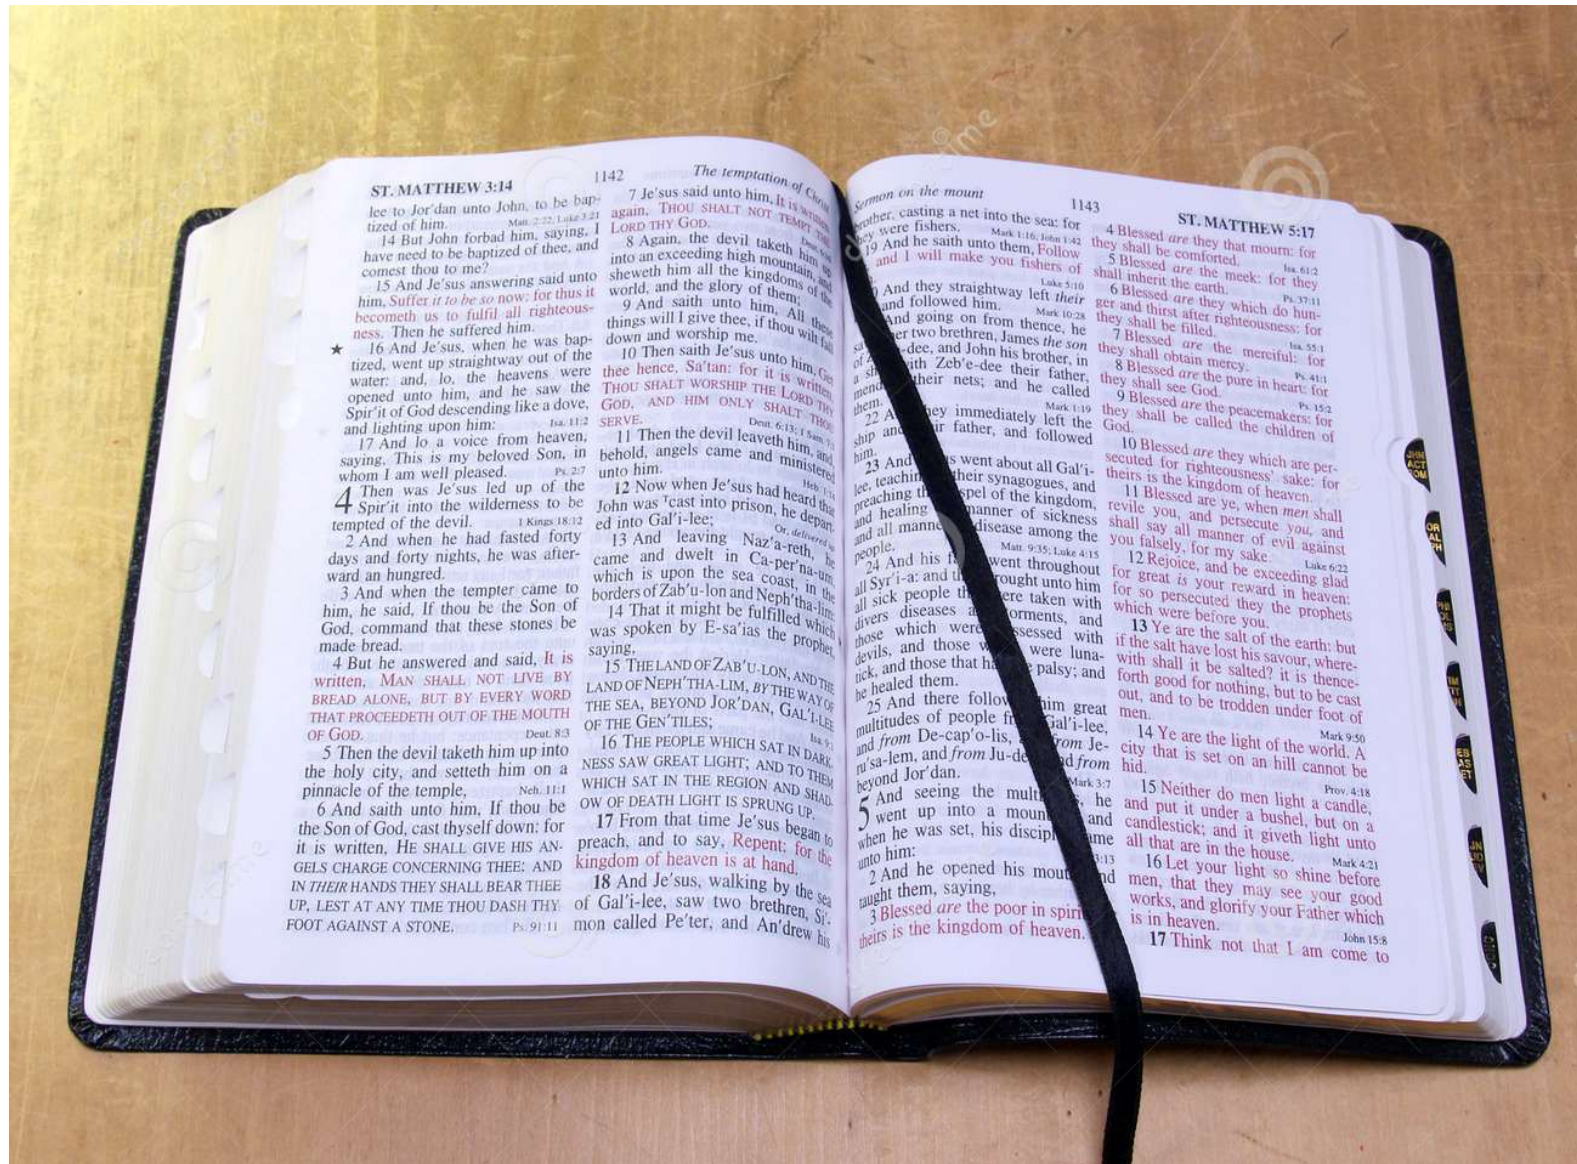 ST. MATTHEW 3:14
1142
The temptation of Christ
lee to Jor'dan unto John, to be bap-
tized of him. Matt. 2:22, Luke 3:21
14 But John forbad him, saying, I
have need to be baptized of thee, and
comest thou to me?
15 And Je'sus answering said unto
him, Suffer it to be so now: for thus it
becometh us to fulfil all righteous-
ness. Then he suffered him.
★ 16 And Je'sus, when he was bap-
tized, went up straightway out of the
water: and, lo, the heavens were
opened unto him, and he saw the
Spir'it of God descending like a dove,
and lighting upon him: Isa. 11:2
17 And lo a voice from heaven,
saying, This is my beloved Son, in
whom I am well pleased. Ps. 2:7
4 Then was Je'sus led up of the
Spir'it into the wilderness to be
tempted of the devil. 1 Kings 18:12
2 And when he had fasted forty
days and forty nights, he was after-
ward an hungred.
3 And when the tempter came to
him, he said, If thou be the Son of
God, command that these stones be
made bread.
4 But he answered and said, It is
written, MAN SHALL NOT LIVE BY
BREAD ALONE, BUT BY EVERY WORD
THAT PROCEEDETH OUT OF THE MOUTH
OF GOD. Deut. 8:3
5 Then the devil taketh him up into
the holy city, and setteth him on a
pinnacle of the temple, Neh. 11:1
6 And saith unto him, If thou be
the Son of God, cast thyself down: for
it is written, HE SHALL GIVE HIS AN-
GELS CHARGE CONCERNING THEE: AND
IN THEIR HANDS THEY SHALL BEAR THEE
UP, LEST AT ANY TIME THOU DASH THY
FOOT AGAINST A STONE. Ps. 91:11
7 Je'sus said unto him, It is written
again, THOU SHALT NOT TEMPT THE
LORD THY GOD. Deut.
8 Again, the devil taketh him up
into an exceeding high mountain, and
sheweth him all the kingdoms of the
world, and the glory of them;
9 And saith unto him, All these
things will I give thee, if thou wilt fall
down and worship me.
10 Then saith Je'sus unto him, Get
thee hence, Sa'tan: for it is written,
THOU SHALT WORSHIP THE LORD THY
GOD, AND HIM ONLY SHALT THOU
SERVE. Deut. 6:13; 1 Sam.
11 Then the devil leaveth him, and,
behold, angels came and ministered
unto him. Heb. 1:14
12 Now when Je'sus had heard that
John was ᵀcast into prison, he depart-
ed into Gal'i-lee; Or, delivered up
13 And leaving Naz'a-reth, he
came and dwelt in Ca-per'na-um,
which is upon the sea coast, in the
borders of Zab'u-lon and Neph'tha-lim:
14 That it might be fulfilled which
was spoken by E-sa'ias the prophet,
saying,
15 THE LAND OF ZAB'U-LON, AND THE
LAND OF NEPH'THA-LIM, BY THE WAY OF
THE SEA, BEYOND JOR'DAN, GAL'I-LEE
OF THE GEN'TILES; Isa. 9:1
16 THE PEOPLE WHICH SAT IN DARK-
NESS SAW GREAT LIGHT; AND TO THEM
WHICH SAT IN THE REGION AND SHAD-
OW OF DEATH LIGHT IS SPRUNG UP.
17 From that time Je'sus began to
preach, and to say, Repent; for the
kingdom of heaven is at hand.
18 And Je'sus, walking by the sea
of Gal'i-lee, saw two brethren, Si'-
mon called Pe'ter, and An'drew his
Sermon on the mount
1143
ST. MATTHEW 5:17
brother, casting a net into the sea: for
they were fishers. Mark 1:16, John 1:42
19 And he saith unto them, Follow
and I will make you fishers of
Luke 5:10
And they straightway left their
and followed him. Mark 10:28
And going on from thence, he
two brethren, James the son
of dee, and John his brother, in
a with Zeb'e-dee their father,
their nets; and he called
them. Mark 1:19
22 they immediately left the
ship and father, and followed
him.
23 And went about all Gal'i-
lee, teaching their synagogues, and
preaching the of the kingdom,
and healing manner of sickness
and all disease among the
people. Matt. 9:35; Luke 4:15
24 And his went throughout
all Syr'i-a: and brought unto him
all sick people were taken with
divers diseases torments, and
those which were with
devils, and those were luna-
tick, and those that palsy; and
he healed them.
25 And there followed him great
multitudes of people Gal'i-lee,
and from De-cap'o-lis, from Je-
ru'sa-lem, and from and from
beyond Jor'dan. Mark 3:7
5 And seeing the he
went up into a and
when he was set, his came
unto him: 3:13
2 And he opened his and
taught them, saying,
3 Blessed are the poor in
theirs is the kingdom of heaven.
4 Blessed are they that mourn: for
they shall be comforted. Isa. 61:2
5 Blessed are the meek: for they
shall inherit the earth. Ps. 37:11
6 Blessed are they which do hun-
ger and thirst after righteousness: for
they shall be filled. Isa. 55:1
7 Blessed are the merciful: for
they shall obtain mercy. Ps. 41:1
8 Blessed are the pure in heart: for
they shall see God. Ps. 15:2
9 Blessed are the peacemakers: for
they shall be called the children of
God.
10 Blessed are they which are per-
secuted for righteousness' sake: for
theirs is the kingdom of heaven.
11 Blessed are ye, when men shall
revile you, and persecute you, and
shall say all manner of evil against
you falsely, for my sake. Luke 6:22
12 Rejoice, and be exceeding glad:
for great is your reward in heaven:
for so persecuted they the prophets
which were before you.
13 Ye are the salt of the earth: but
if the salt have lost his savour, where-
with shall it be salted? it is thence-
forth good for nothing, but to be cast
out, and to be trodden under foot of
men. Mark 9:50
14 Ye are the light of the world. A
city that is set on an hill cannot be
hid. Prov. 4:18
15 Neither do men light a candle,
and put it under a bushel, but on a
candlestick; and it giveth light unto
all that are in the house. Mark 4:21
16 Let your light so shine before
men, that they may see your good
works, and glorify your Father which
is in heaven. John 15:8
17 Think not that I am come to
JHN
ACT
ROM